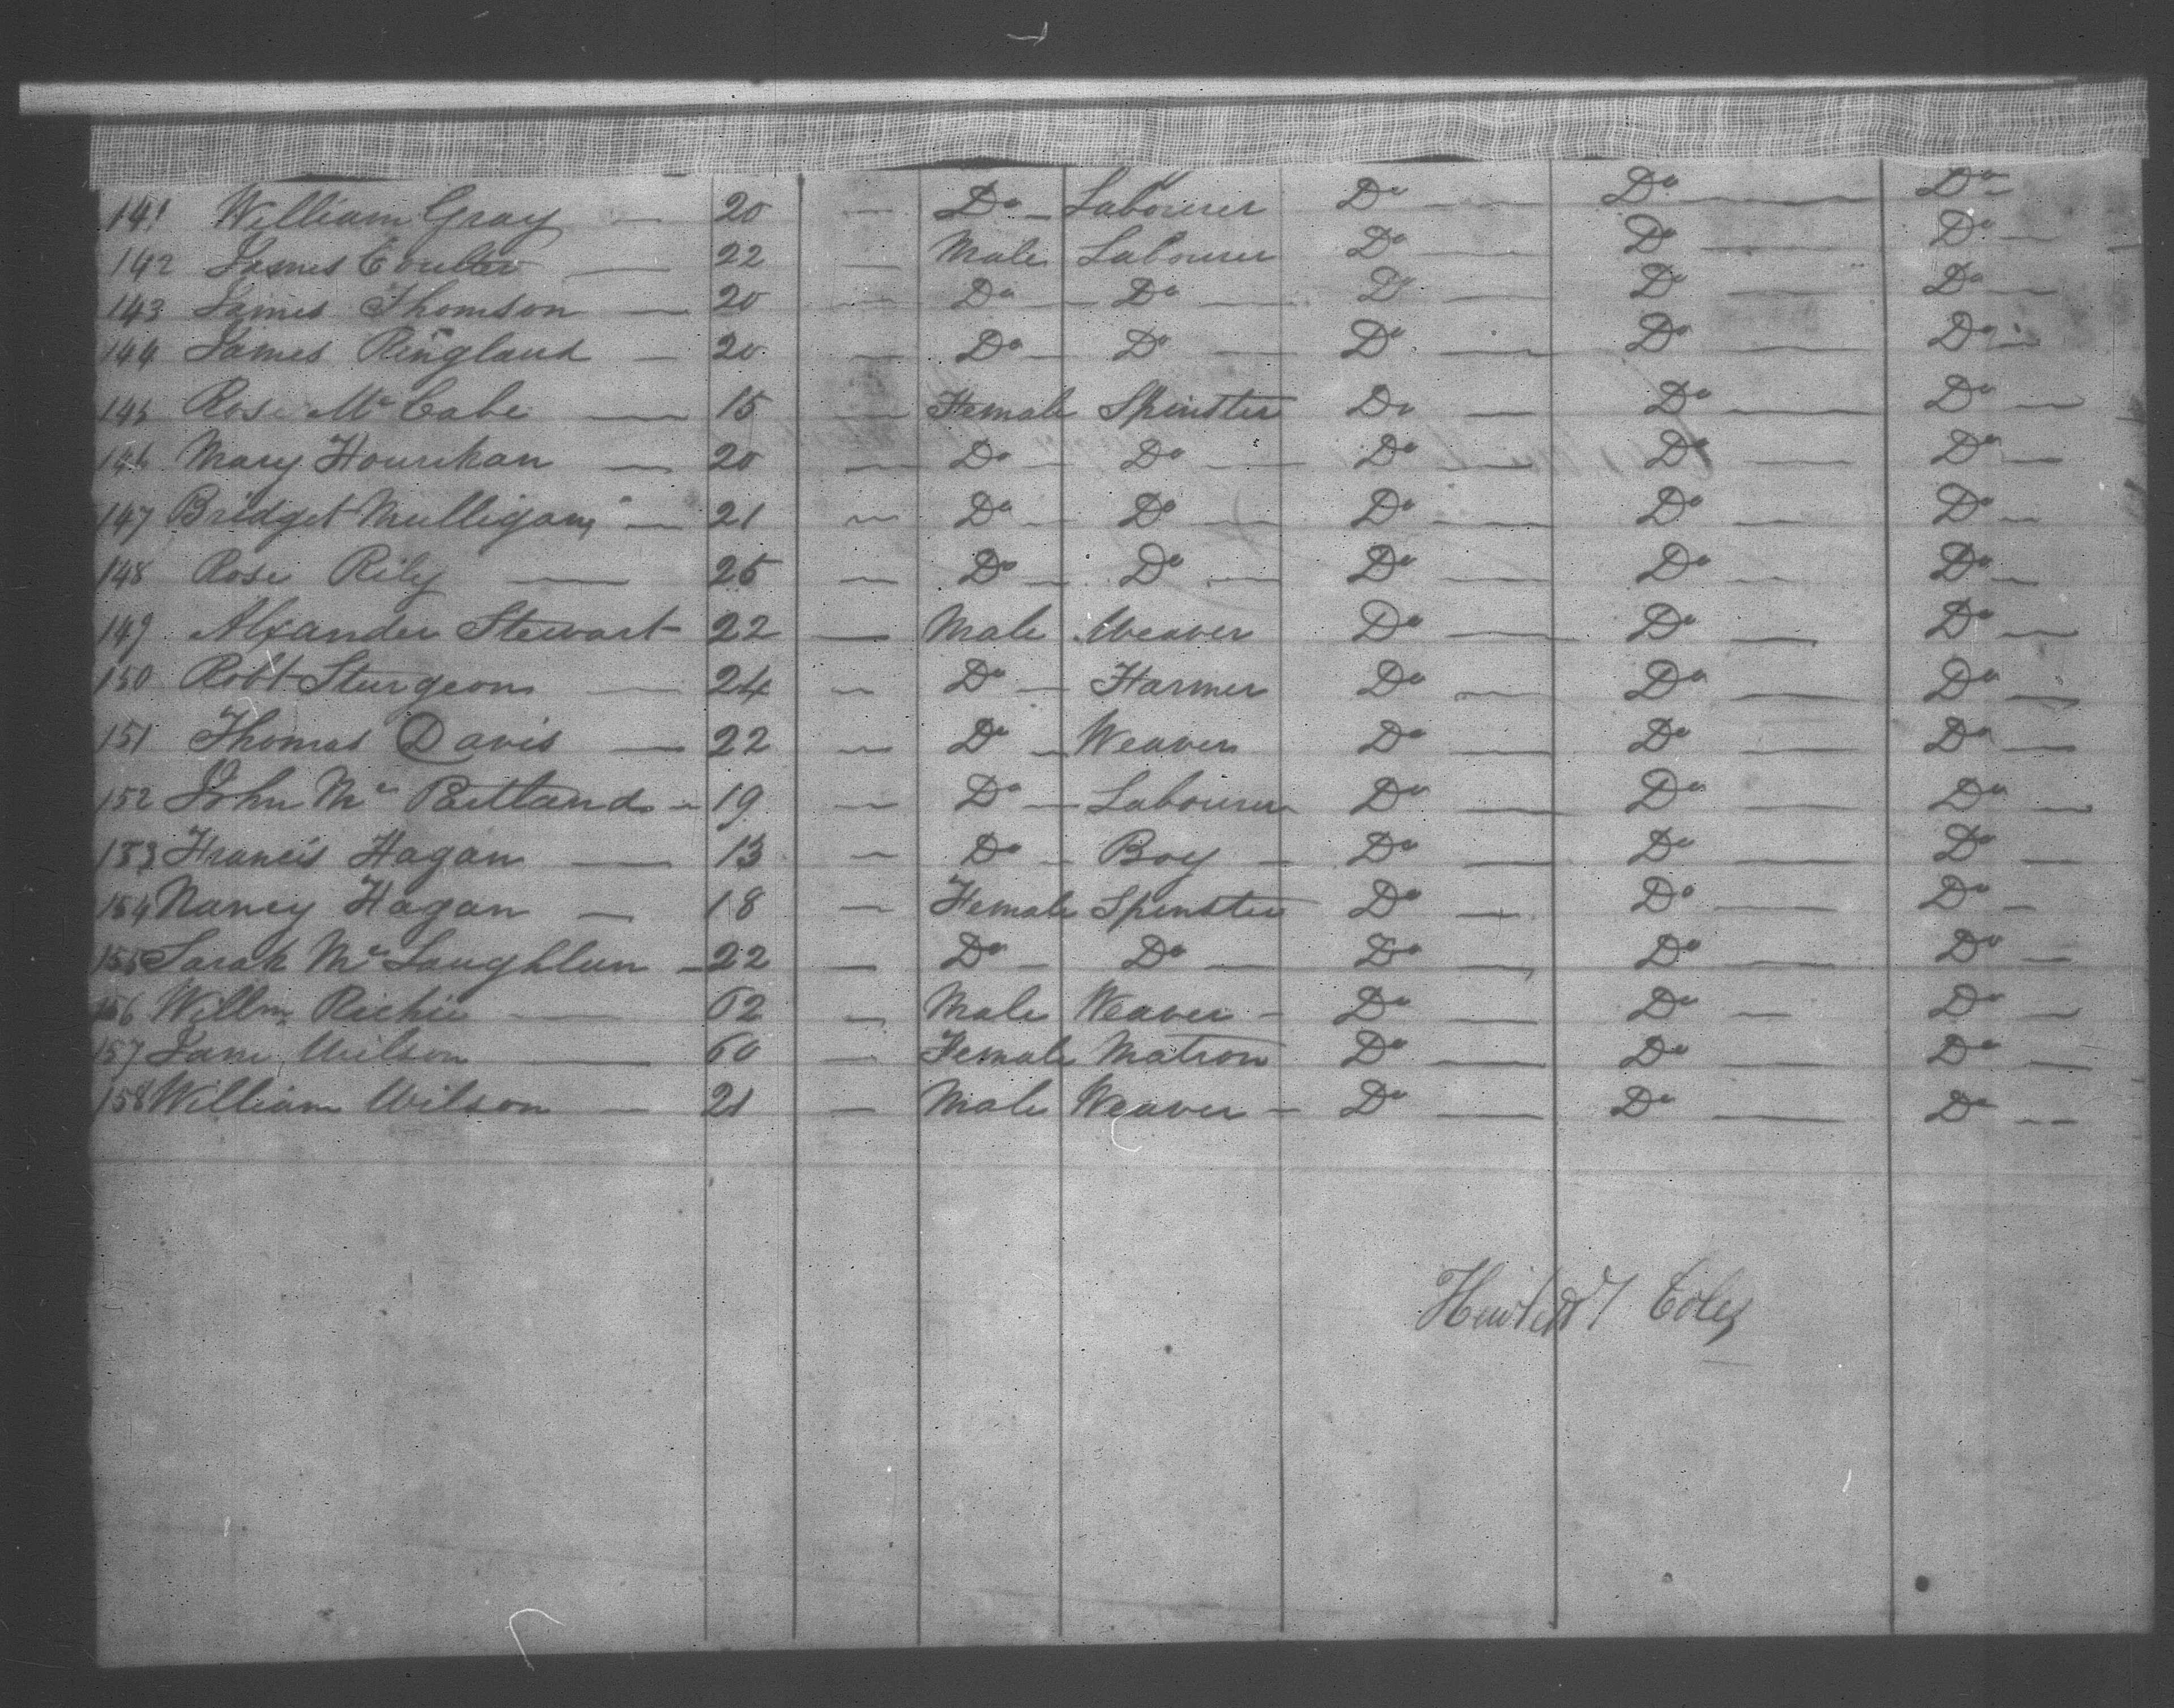 141 William Gray — 20 — Do — Labourer Do — Do — Do —
142 James Coulter — 22 — Male Labourer Do — Do — Do —
143 James Thomson — 20 — Do — Do — Do — Do — Do —
144 James Ringland — 20 — Do — Do — Do — Do — Do —
145 Rose McCabe — 15 — Female Spinster Do — Do — Do —
146 Mary Hourikan — 20 — Do — Do — Do — Do — Do —
147 Bridget Mulligan — 21 — Do — Do — Do — Do — Do —
148 Rose Rily — 25 — Do — Do — Do — Do — Do —
149 Alxander Stewart 22 — Male Weaver Do — Do — Do —
150 Robt Sturgeon — 24 — Do — Farmer Do — Do — Do —
151 Thomas Davis — 22 — Do — Weaver Do — Do — Do —
152 John Mc — 19 — Do — Labourer Do — Do — Do —
153 Francis Hagan — 13 — Do — Boy — Do — Do — Do —
154 Nancy Hagan — 18 — Female Spinster Do — Do — Do —
155 Sarah McLaughlin — 22 — Do — Do — Do — Do — Do —
156 Willm Richie — 62 — Male Weaver — Do — Do — Do —
157 Jane Wilson — 60 — Female Matron Do — Do — Do —
158 William Wilson — 21 — Male Weaver — Do — Do — Do —
Coles